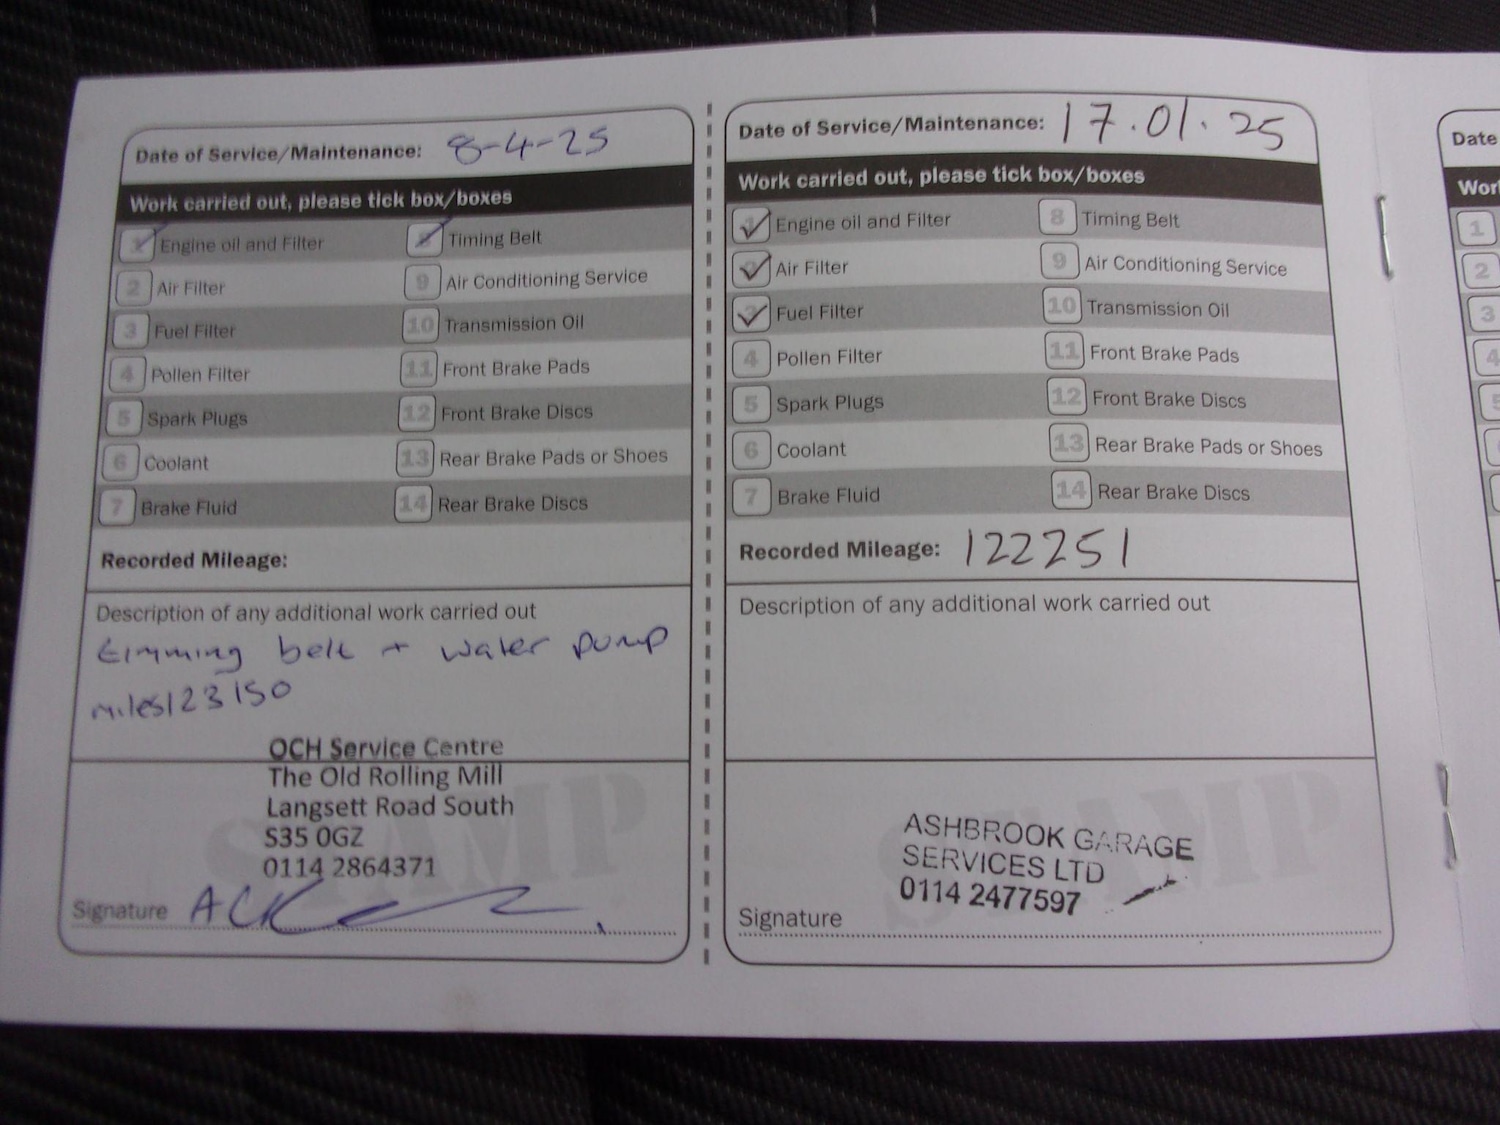 Date of Service/Maintenance: 8-4-25
Work carried out, please tick box/boxes
1 Engine oil and Filter
8 Timing Belt
2 Air Filter
9 Air Conditioning Service
3 Fuel Filter
10 Transmission Oil
4 Pollen Filter
11 Front Brake Pads
5 Spark Plugs
12 Front Brake Discs
6 Coolant
13 Rear Brake Pads or Shoes
7 Brake Fluid
14 Rear Brake Discs
Recorded Mileage:
Description of any additional work carried out
timming belt + water pump
miles 123150
OCH Service Centre
The Old Rolling Mill
Langsett Road South
S35 0GZ
0114 2864371
STAMP
Signature
Date of Service/Maintenance: 17.01.25
Work carried out, please tick box/boxes
1 Engine oil and Filter
8 Timing Belt
2 Air Filter
9 Air Conditioning Service
3 Fuel Filter
10 Transmission Oil
4 Pollen Filter
11 Front Brake Pads
5 Spark Plugs
12 Front Brake Discs
6 Coolant
13 Rear Brake Pads or Shoes
7 Brake Fluid
14 Rear Brake Discs
Recorded Mileage: 122251
Description of any additional work carried out
ASHBROOK GARAGE
SERVICES LTD
0114 2477597
STAMP
Signature
Date
1
2
3
4